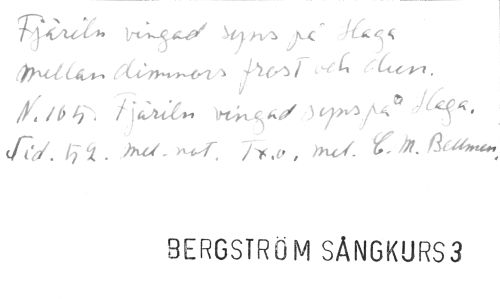 Fjäriln vingad syns på Haga
mellan dimmors frost och dun.
N. 165. Fjäriln vingad syns på Haga.
Sid. 52. mel.-not. Tx. o. mel. C. M. Bellman.
BERGSTRÖM SÅNGKURS 3